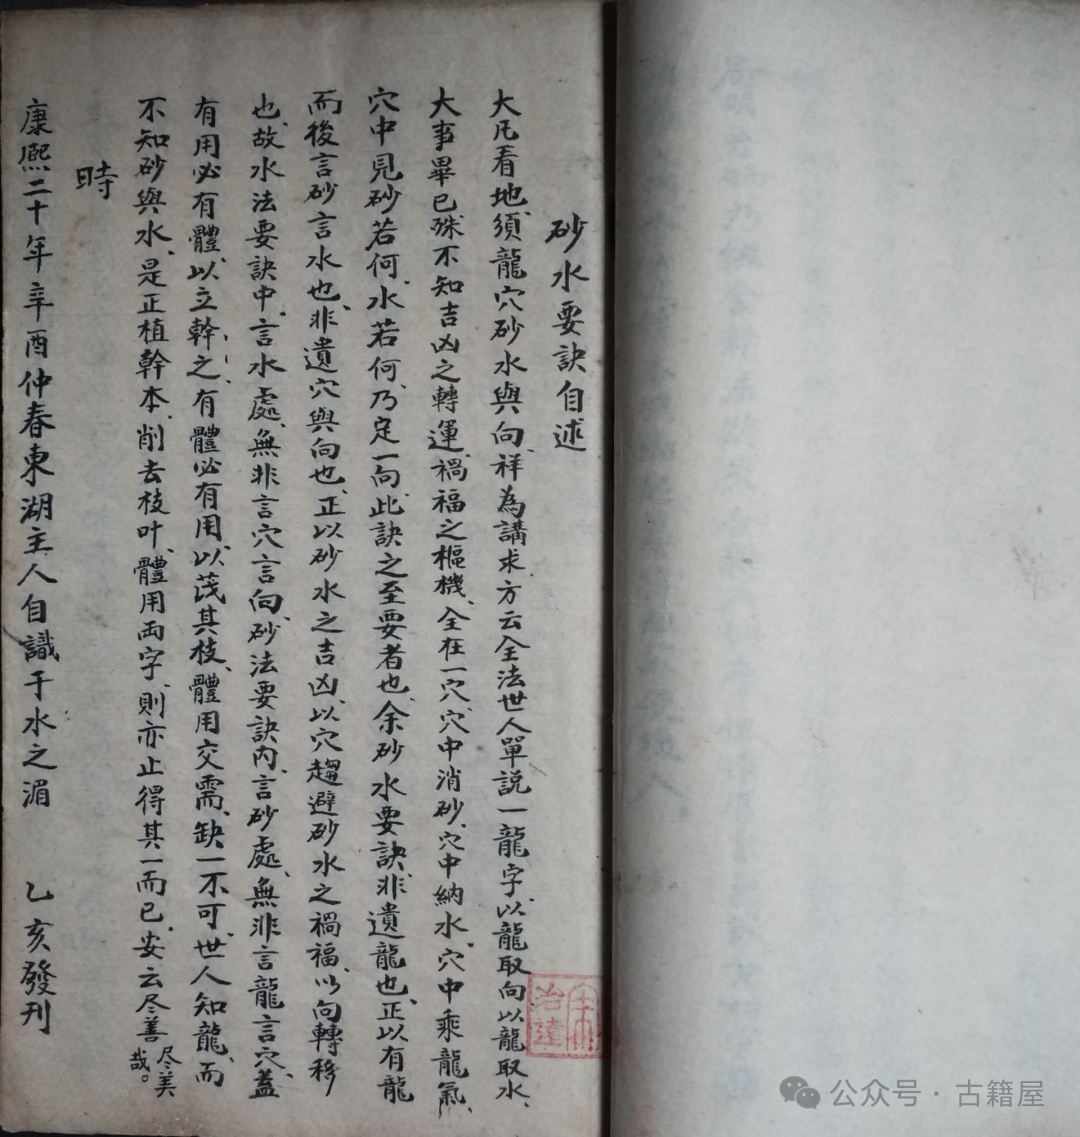 砂水要訣自述
大凡看地、須龍穴砂水與向、祥為講求、方云全法世人單説一龍字、以龍取向以龍取水、
大事畢已、殊不知吉凶之轉運、禍福之樞機、全在一穴、穴中消砂、穴中納水、穴中乘龍氣、
穴中見砂若何、水若何、乃定一向、此訣之至要者也、余砂水要訣、非遺龍也、正以有龍
而後言砂言水也、非遺穴與向也、正以砂水之吉凶、以穴趨避砂水之禍福、以向轉移
也、故水法要訣中、言水處、無非言穴言向、砂法要訣内、言砂處、無非言龍言穴、蓋
有用必有體、以立幹之、有體必有用、以茂其枝、體用交需、缺一不可、世人知龍、而
不知砂與水、是正植幹本、削去枝叶、體用両字、則亦止得其一而已、安云尽善尽美哉。
時
康熙二十年辛酉仲春東湖主人自識于水之湄 乙亥發刊
公众号·古籍屋